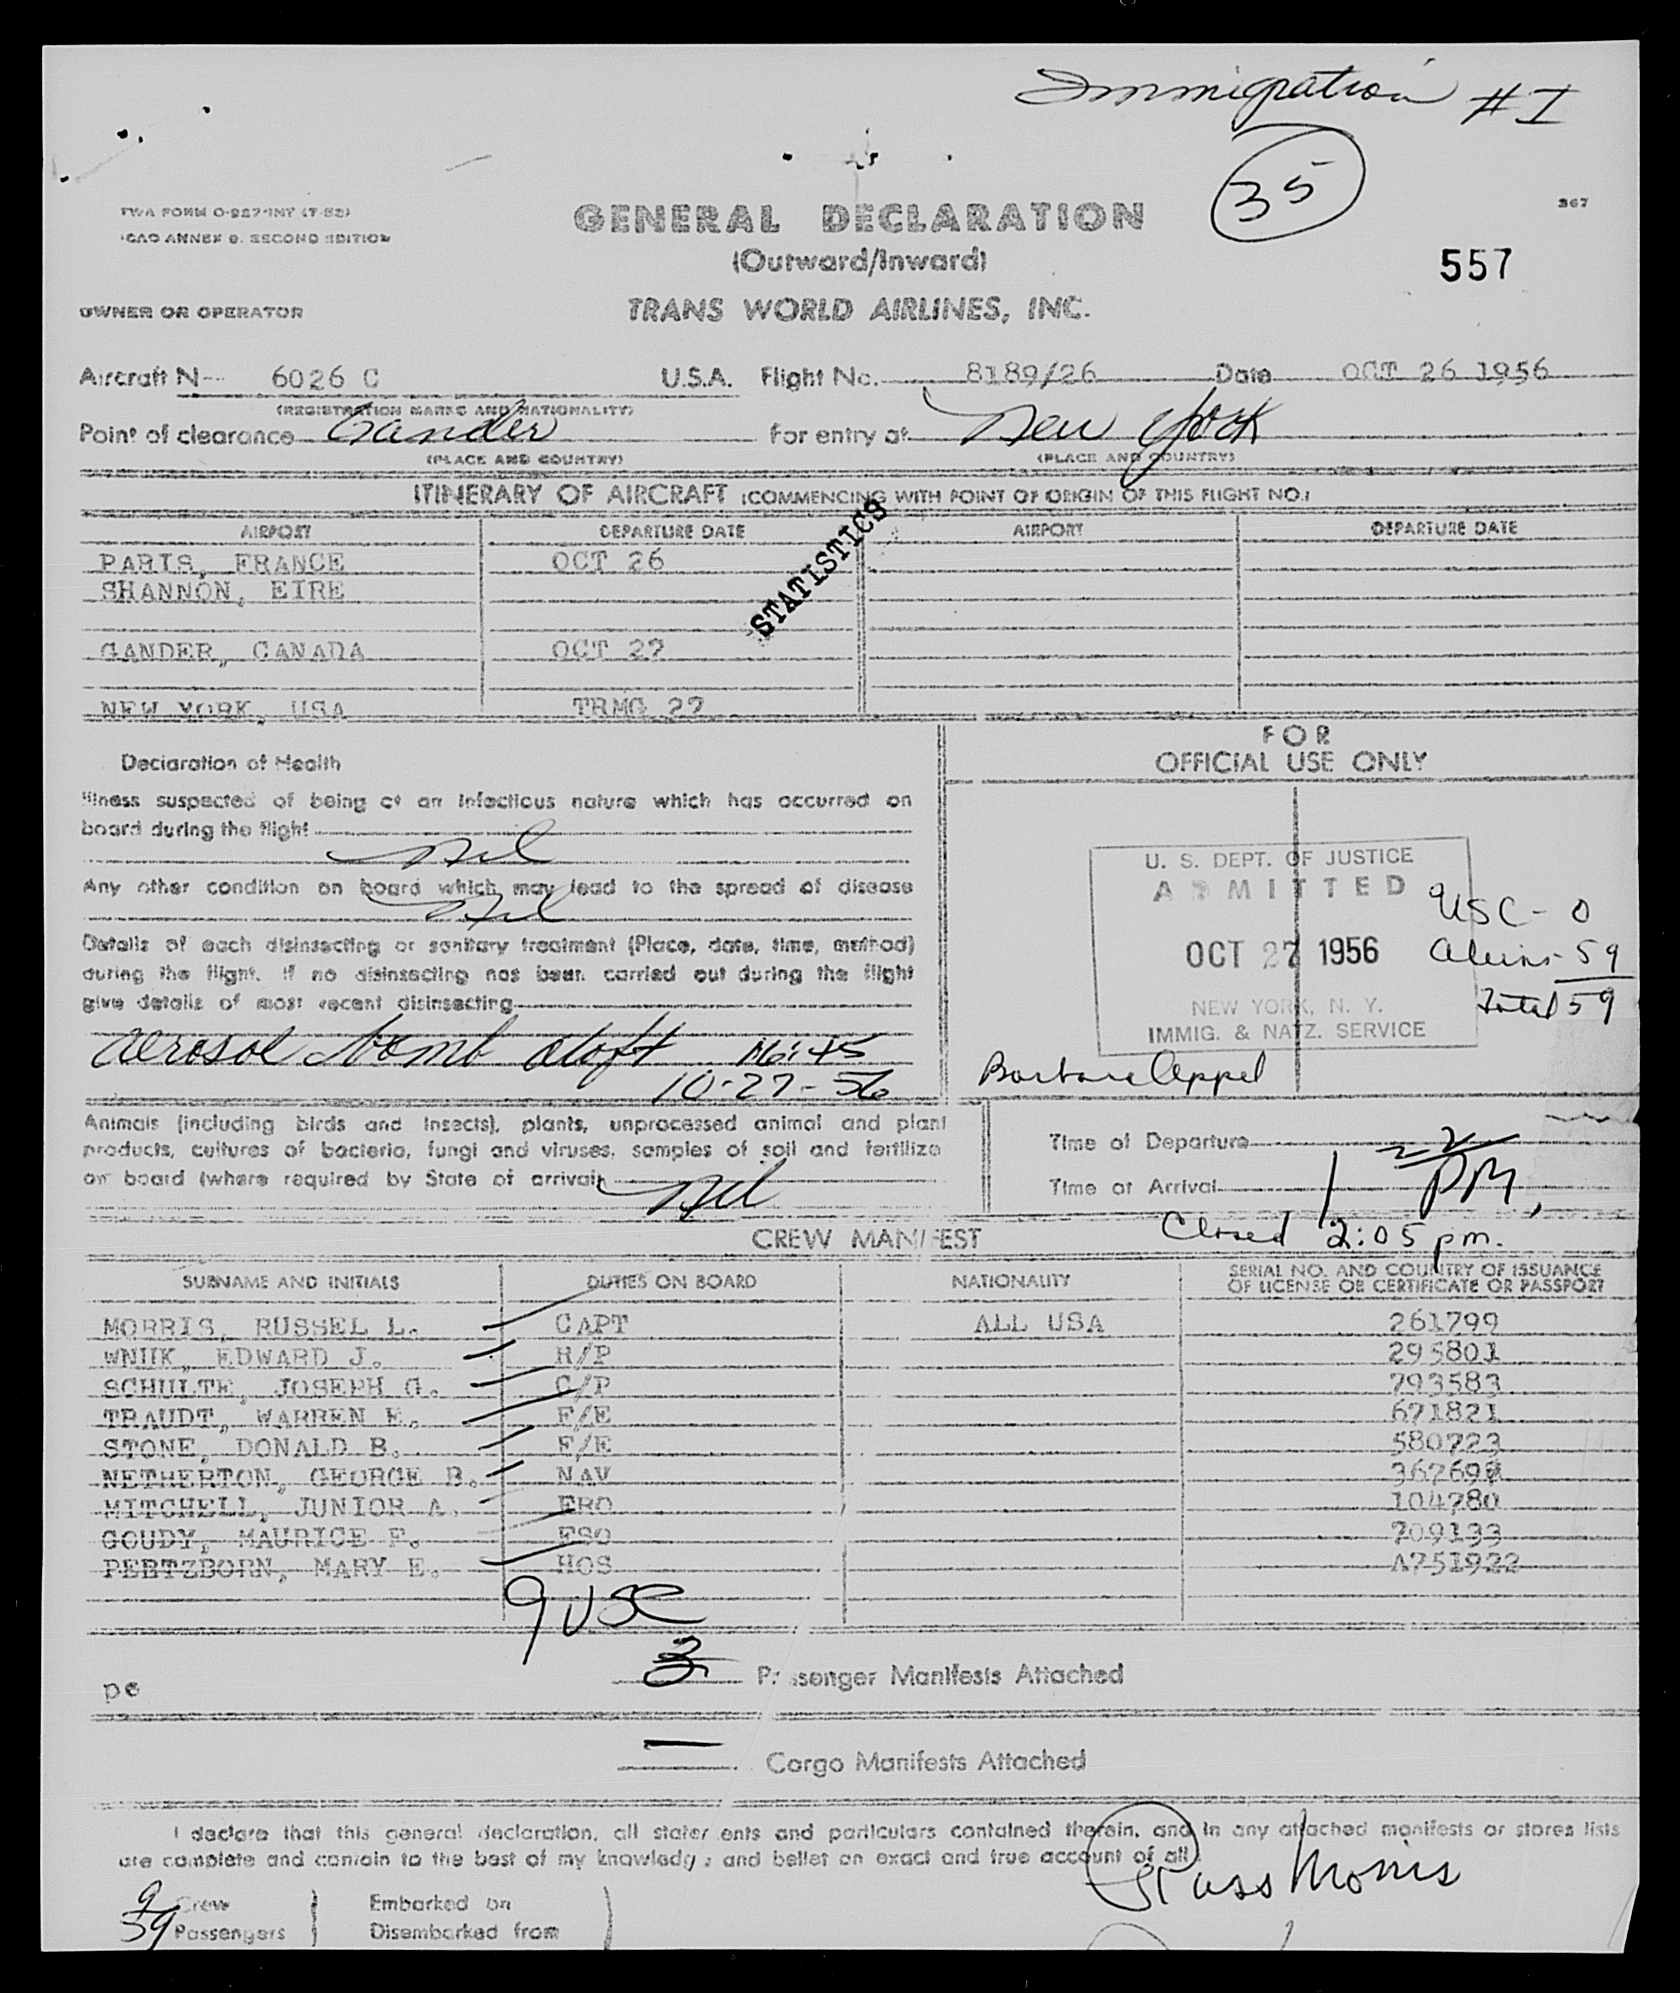 Immigration #I
35
TWA FORM O-927-INT (7-52)
ICAO ANNEX 9, SECOND EDITION
GENERAL DECLARATION
367
(Outward/Inward)
557
OWNER OR OPERATOR
TRANS WORLD AIRLINES, INC.
Aircraft N-- 6026 C U.S.A. Flight No. 8189/26 Date OCT 26 1956
(REGISTRATION MARKS AND NATIONALITY)
Point of clearance Gander For entry at New York
(PLACE AND COUNTRY) (PLACE AND COUNTRY)
ITINERARY OF AIRCRAFT (COMMENCING WITH POINT OF ORIGIN OF THIS FLIGHT NO.)
AIRPORT DEPARTURE DATE AIRPORT DEPARTURE DATE
STATISTICS
PARIS, FRANCE OCT 26
SHANNON, EIRE
GANDER, CANADA OCT 27
NEW YORK, USA TRMG 27
FOR
OFFICIAL USE ONLY
Declaration of Health
Illness suspected of being of an infectious nature which has occurred on
board during the flight
Nil
Any other condition on board which may lead to the spread of disease
Nil
Details of each disinsecting or sanitary treatment (Place, date, time, method)
during the flight. If no disinsecting has been carried out during the flight
give details of most recent disinsecting
Aerosol bomb aloft 1645
10-27-56
U. S. DEPT. OF JUSTICE
ADMITTED
OCT 27 1956
NEW YORK, N. Y.
IMMIG. & NATZ. SERVICE
USC - 0
Aliens - 59
Total 59
Barbara Appel
Animals (including birds and insects), plants, unprocessed animal and plant
products, cultures of bacteria, fungi and viruses, samples of soil and fertilize
on board (where required by State of arrival)
Nil
Time of Departure
Time of Arrival 1 22 PM,
Closed 2:05 pm.
CREW MANIFEST
SURNAME AND INITIALS DUTIES ON BOARD NATIONALITY SERIAL NO. AND COUNTRY OF ISSUANCE
OF LICENSE OR CERTIFICATE OR PASSPORT
MORRIS, RUSSEL L. CAPT ALL USA 261799
WNUK, EDWARD J. R/P 295801
SCHULTE, JOSEPH G. C/P 793583
TRAUDT, WARREN E. F/E 671821
STONE, DONALD B. F/E 580723
NETHERTON, GEORGE B. NAV
MITCHELL, JUNIOR A. FRO 104780
GOUDY, MAURICE F. FSO 709133
PERTZBORN, MARY E. HOS A751922
9 USC
3 Passenger Manifests Attached
pe
— Cargo Manifests Attached
I declare that this general declaration, all statements and particulars contained therein, and in any attached manifests or stores lists
are complete and contain to the best of my knowledge and belief an exact and true account of all
Russ Morris
9 Crew } Embarked on )
59 Passengers } Disembarked from )